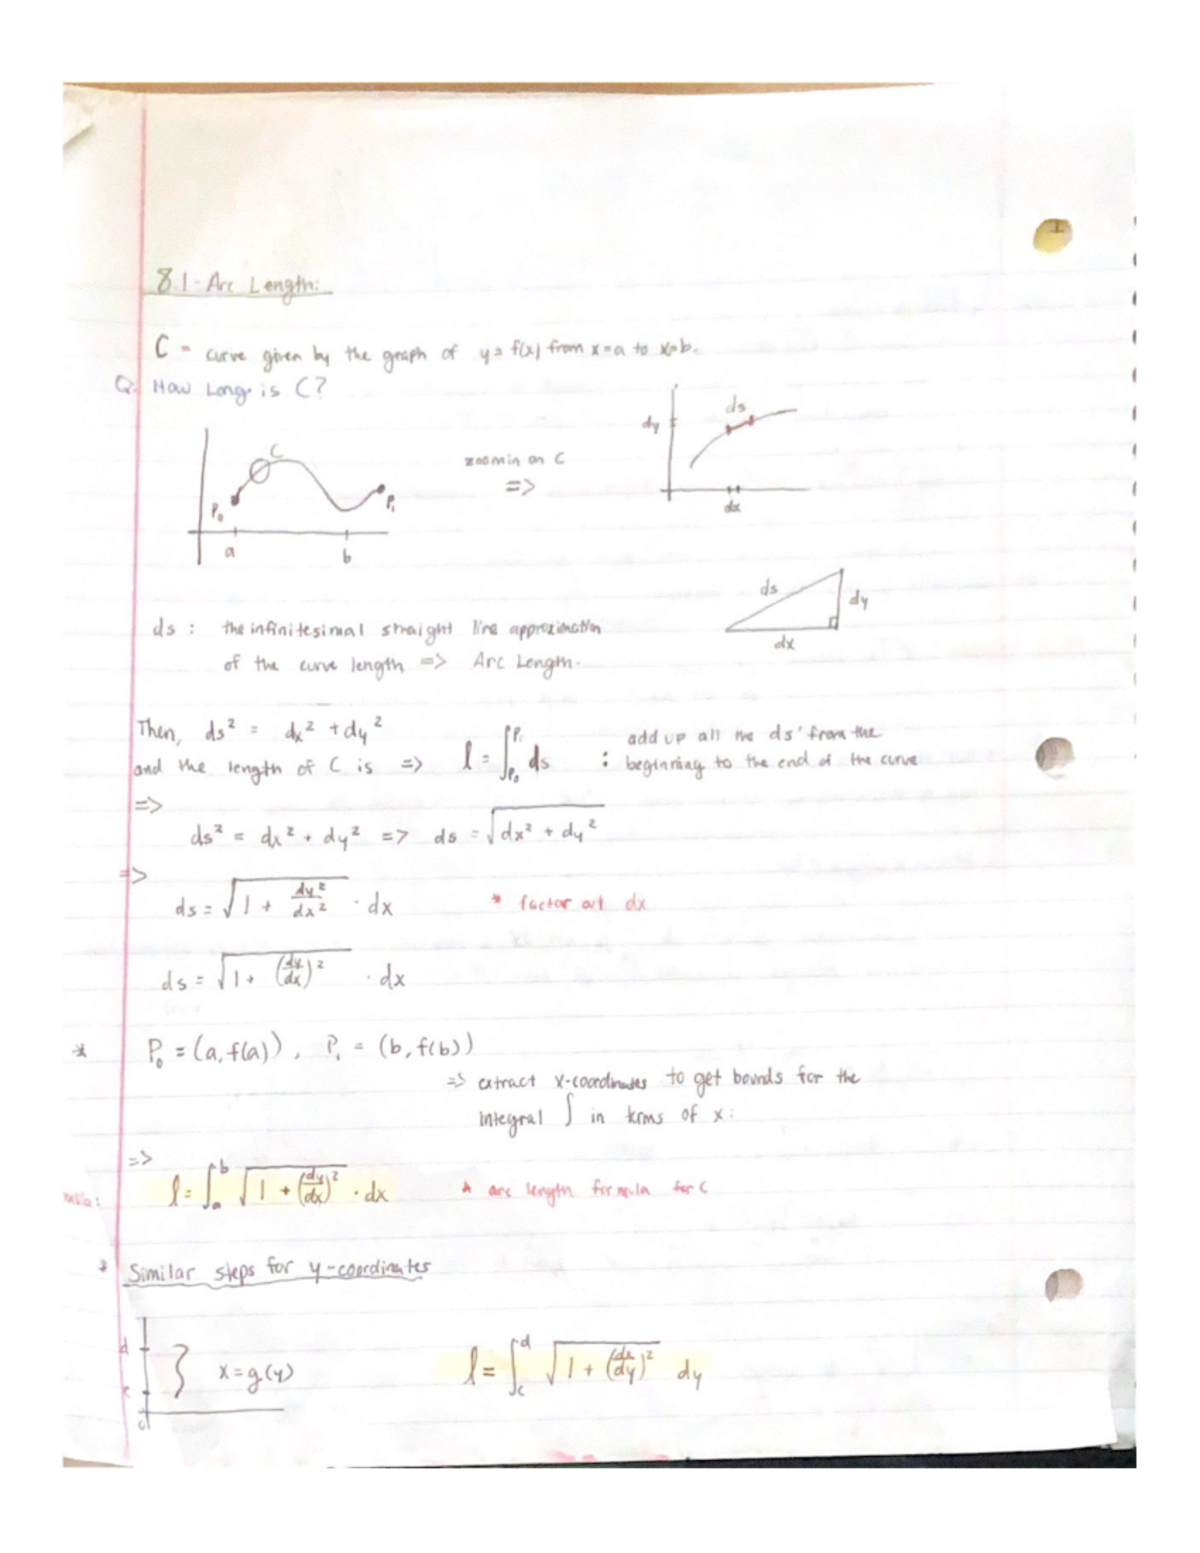 8.1 - Arc Length:
C = curve given by the graph of y = f(x) from x=a to x=b.
Q. How Long is C?
C
P₀
P₁
a
b
zoom in on C
=>
dy
ds
dx
ds
dy
dx
ds : the infinitesimal straight line approximation
of the curve length => Arc Length.
Then, ds² = dx² + dy²
and the length of C is => l = ∫_{P₀}^{P₁} ds : add up all the ds' from the
beginning to the end of the curve
=>
ds² = dx² + dy² => ds = √(dx² + dy²)
=>
ds = √(1 + dy²/dx²) · dx * factor out dx
ds = √(1 + (dy/dx)²) · dx
* P₀ = (a, f(a)), P₁ = (b, f(b))
=> extract x-coordinates to get bounds for the
integral ∫ in terms of x:
=>
l = ∫_a^b √(1 + (dy/dx)²) · dx * arc length formula for C
* Similar steps for y-coordinates
d
c
x = g(y)
l = ∫_c^d √(1 + (dx/dy)²) dy